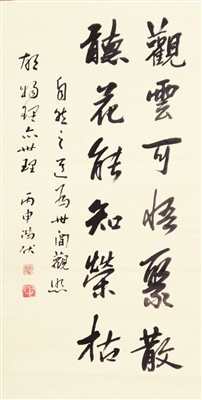 觀雲可悟聚散
聽花能知榮枯
自然之道為世間觀照
故物理亦世理 丙申 鴻伏